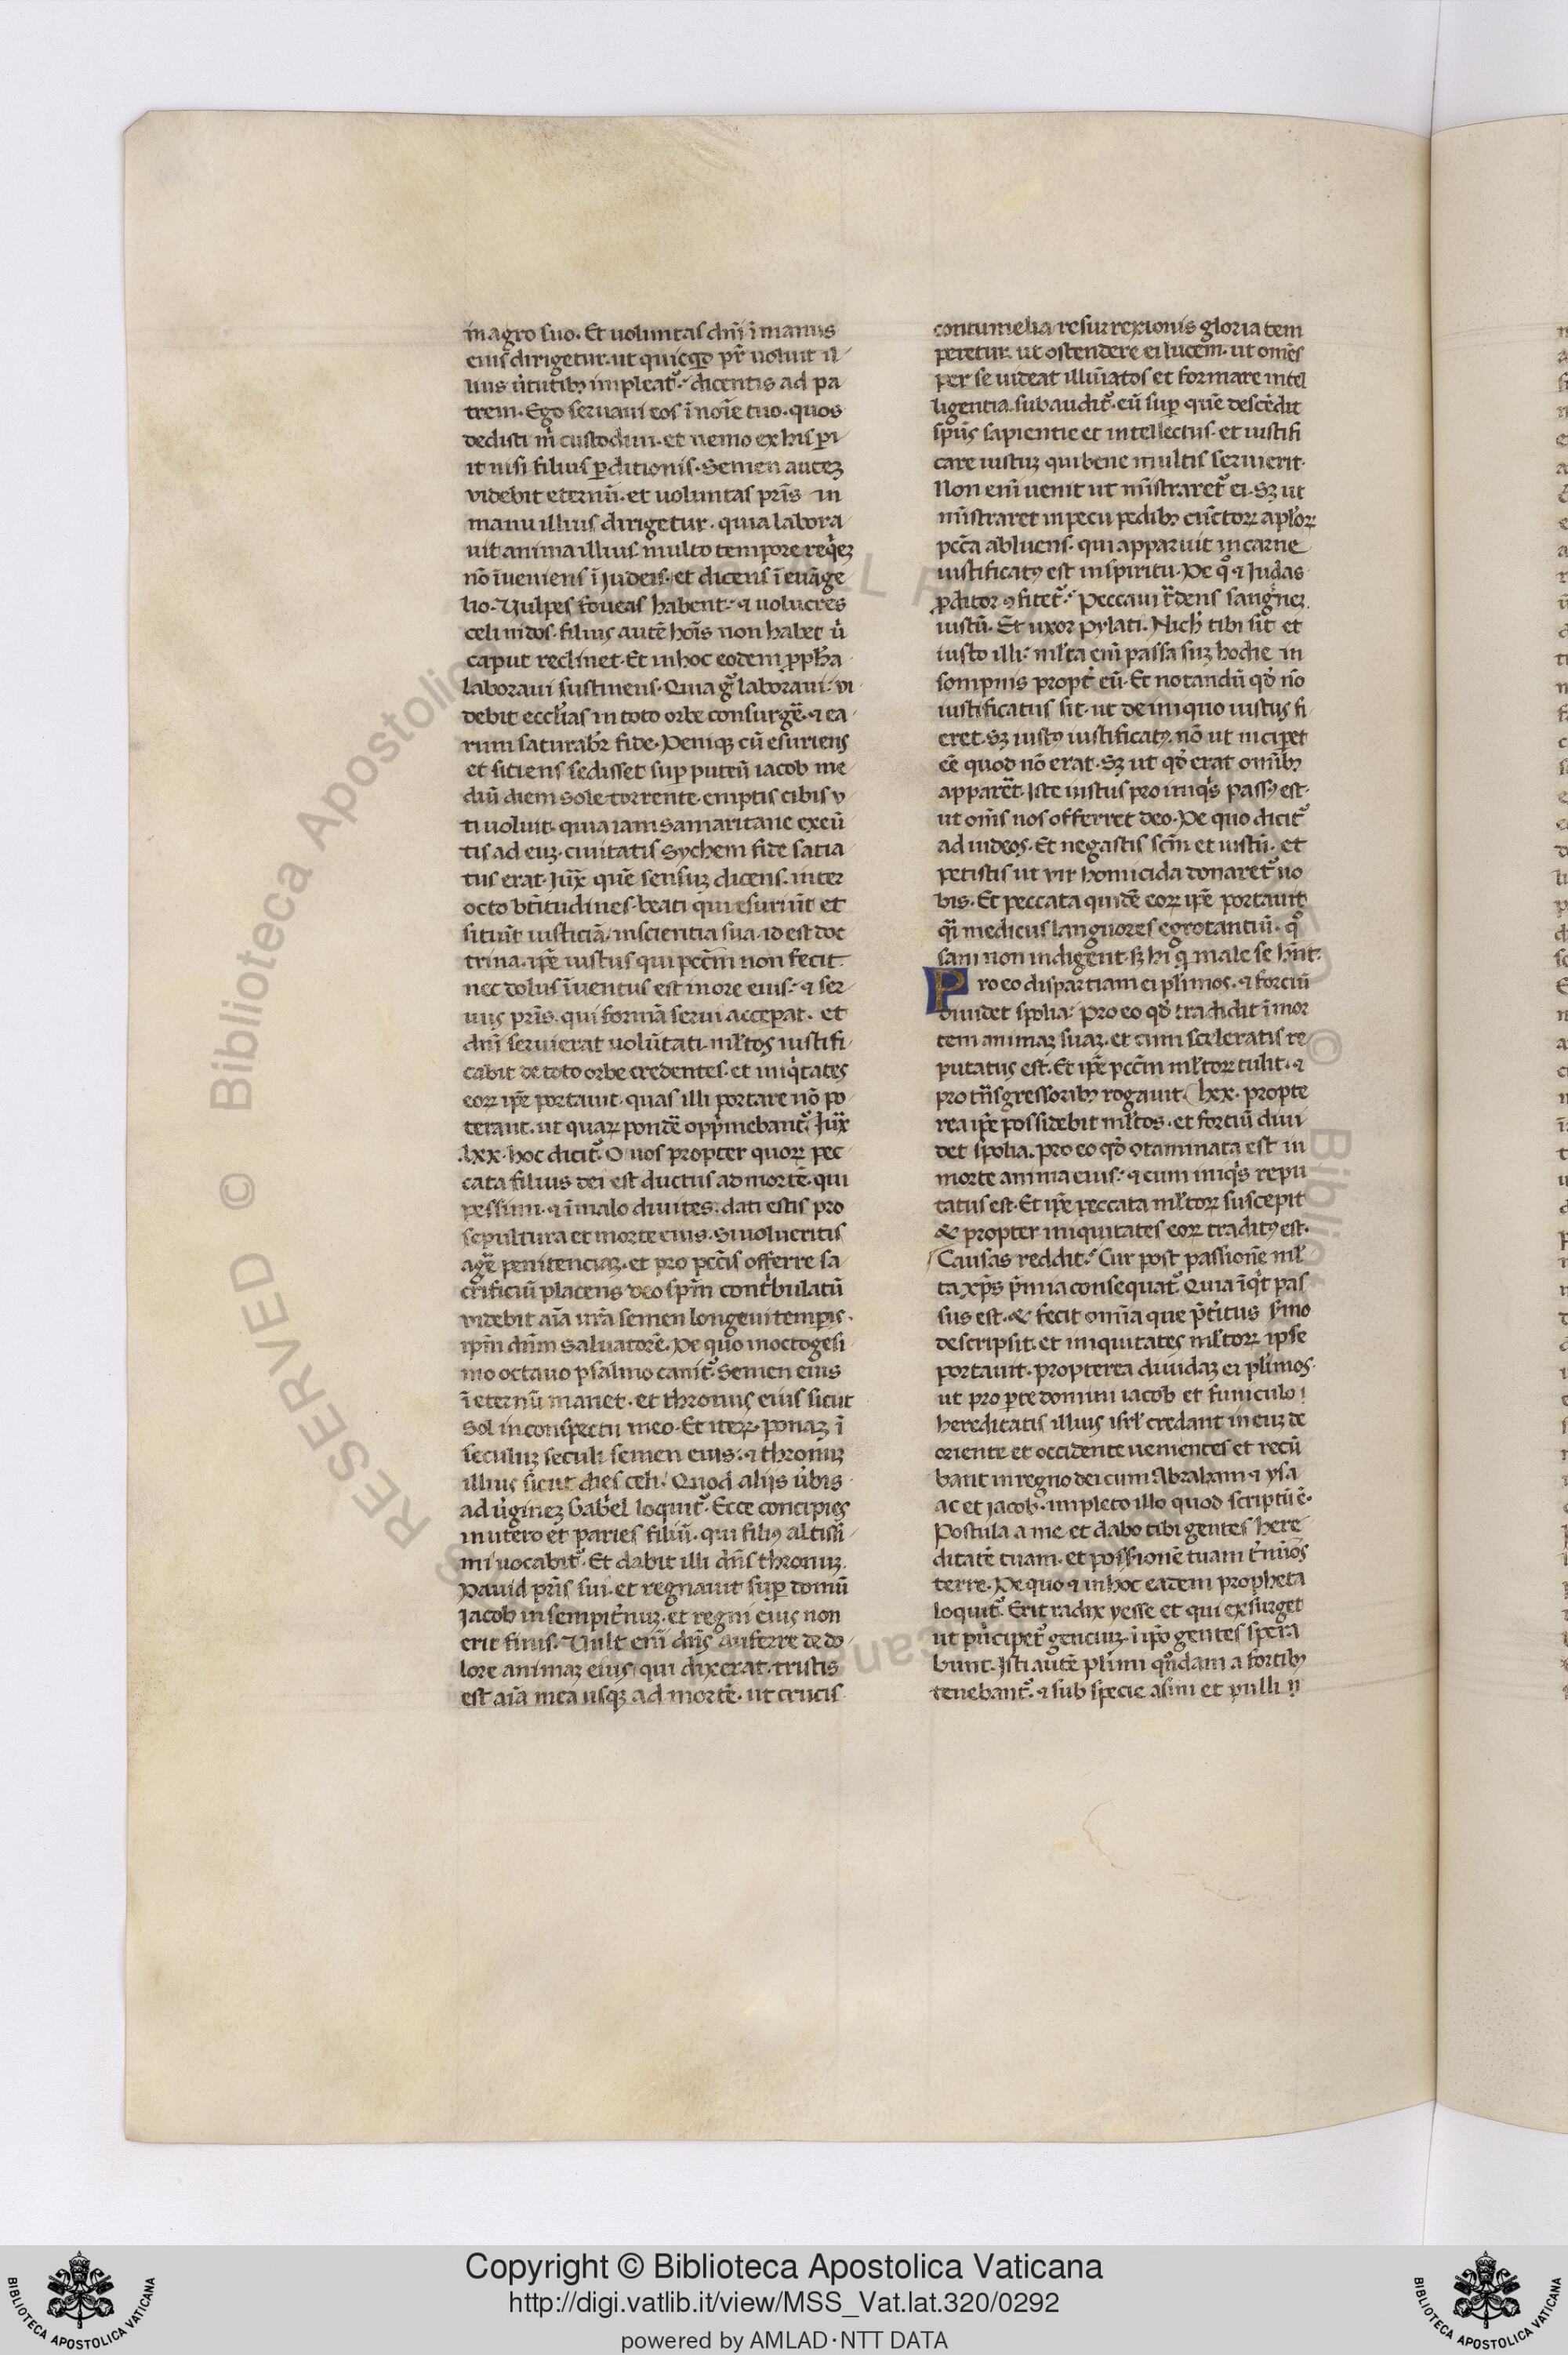 in agro suo. Et uoluntas dn̄i ī manus
eius dirigetur. ut quicq̄d pr̄ uoluit il
lius u̓tutibꝫ impleat᷑. dicentis ad pa
trem. Ego seruaui eos ī noīe tuo. quos
dedisti m̓ custodiui. et nemo ex his p̱i
it nisi filius p̱ditionis. Semen auteꝫ
videbit eternū. et uoluntas pr̄is in
manu illius dirigetur. quia labora
uit anima illius multo tempore reqͥeꝫ
nō īueniens ī Judeis. et dicens ī euāge
lio. Uulpes foueas habent. ⁊ uolucres
celi nidos. filius autē hoīs non habet u̓
caput reclinet. Et in hoc eodem ꝓph̄a
laboraui sustinens. Quia g̊ laboraui. vi
debit eccl̓ias in toto orbe consurge᷑. ⁊ ea
rum saturabr̓ fide. Deniqꝫ cū esuriens
et sitiens sedisset sup̱ puteū iacob me
diū diem sole torrente. emptis cibis v
ti uoluit. quia iam samaritane exeū
tis ad euꝫ. ciuitatis Sychem fide satia
tus erat. Jux̄ quē sensuꝫ dicens. inter
octo bt̄itudines. beati qui esuriūt et
sitiūt iusticiā. in scientia sua. id est doc
trina. ip̄e iustus qui pcc̄m non fecit.
nec dolus īuentus est in ore eius. ⁊ ser
uus pr̄is. qui formā serui accepat. et
dn̄i seruierat uolūtati. ml̓tos iustifi
cabit de toto orbe credentes. et iniqͥtates
eoꝝ ip̄e portauit. quas illi portare nō po
terant. ut quaꝝ ponde᷑ opp̓mebant᷑. Jux̄
.lxx. hoc dicit᷑. O uos propter quoꝝ pec
cata filius dei est ductus ad mortē. qui
pessimi. ⁊ ī malo diuites. dati estis pro
sepultura et morte eius. Si uolueritis
age᷑ penitenciaꝫ. et pro pcc̄is offerre sa
cr̓ificiū placens deo sp̄m contͥbulatū
videbit aīa ur̄a semen longeui temporis.
ip̄m dn̄m saluatorē. De quo in octogesi
mo octauo psalmo canit᷑. Semen eius
ī eternū manet. et thronus eius sicut
sol in conspectu meo. Et iteꝝ. ponaꝫ ī
seculuꝫ seculi semen eius. ⁊ thronuꝫ
illius sicut dies celi. Quod alijs u̓bis
ad u̓gineꝫ Gab̓el loquit᷑. Ecce concipies
in utero et paries filiū. qui filiꝰ altissi
mi uocabit᷑. Et dabit illi dn̄s thronuꝫ
Dauid pr̄is sui. et regnauit sup̱ domū
Jacob in sempit̓nuꝫ. et regni eius non
erit finis. Uult enī dn̄s auferre de do
lore animaꝫ eius. qui dixerat. tristis
est aīa mea usqꝫ ad mortē. ut crucis
contumelia resurrexionis gloria tem
peretur. ut ostendere ei lucem. ut omēs
per se uideat illūiatos et formare intel
ligentia. subaudit᷑. eū sup̱ quē descēdit
sp̄us sapientie et intellectus. et iustifi
care iustuꝫ qui bene multis seruierit.
Non enī uenit ut mīstraret᷑ ei. Sꝫ ut
mīstraret in pecu pedibꝫ cūctoꝝ apl̓oꝝ
pcc̄a abluens. qui apparuit in carne
iustificatꝰ est in spiritu. De qͦ ⁊ Judas
ꝓditor ꝯfitet᷑. Peccaui t̓dens sanguineꝫ
iustū. Et uxor Pylati. Nich̓ tibi sit et
iusto illi. ml̓ta enī passa suꝫ hodie in
sompnis propt̓ eū. Et notandū qd̓ nō
iustificatus sit. ut de iniquo iustus fi
eret. Sꝫ iustꝰ iustificatꝰ. nō ut incip̱et
eē quod nō erat. Sꝫ ut qd̓ erat omībꝫ
appare᷑t. Iste iustus pro iniqͥs passꝰ est.
ut om̄is nos offerret deo. De quo dicit᷑
ad iudeos. Et negastis sc̄m et iustū. et
petistis ut vir homicida donaret᷑ uo
bis. Et peccata quidē eoꝝ ip̄e portauit
q̄i medicus languores egrotantiū. qͥ
sani non indigent. sꝫ hi qͥ male se hn̄t.
Pro eo dispartiam ei pl̓imos. ⁊ forciū
diuidet spolia. Pro eo qd̓ tradidit ī mor
tem animaꝫ suaꝫ. et cum sceleratis re
putatus est. Et ip̄e pcc̄m ml̓toꝝ tulit. ⁊
pro tn̄sgressoribꝫ rogauit. lxx. propte
rea ip̄e possidebit ml̓tos. et forciū diui
det spolia. pro eo qd̓ ꝯtaminata est in
morte anima eius. ⁊ cum iniqͥs repu
tatus est. Et ip̄e peccata ml̓toꝝ suscepit
& propter iniquitates eoꝝ traditꝰ est.
Causas reddit. Cur post passionē ml̓
ta xp̄s p̓mia consequat᷑. Quia īqͥt pas
sus est. & fecit omīa que p̄titus s̓mo
descripsit. et iniquitates ml̓toꝝ ipse
portauit. propterea diuidaꝫ ei pl̓imos.
ut pro p̱te domini iacob et funiculo
hereditatis illius isrl̓ credant in euꝫ de
oriente et occidente uenientes et recū
bant in regno dei cum Abraham ⁊ ysa
ac et jacob. impleto illo quod scriptū ē.
Postula a me et dabo tibi gentes here
ditatē tuam. et possionē tuam t̓mīos
terre. De quo ⁊ in hoc eadem propheta
loquit᷑. Erit radix yesse et qui exsurget
ut pn̄cipet᷑ genciuꝫ. ī ip̄o gentes spera
bunt. Isti autē pl̓imi qn̄dam a fortibꝫ
tenebant᷑. ⁊ sub specie asini et pulli
RESERVED © Biblioteca Apostolica
Copyright © Biblioteca Apostolica Vaticana
http://digi.vatlib.it/view/MSS_Vat.lat.320/0292
powered by AMLAD·NTT DATA
BIBLIOTECA APOSTOLICA VATICANA
BIBLIOTECA APOSTOLICA VATICANA